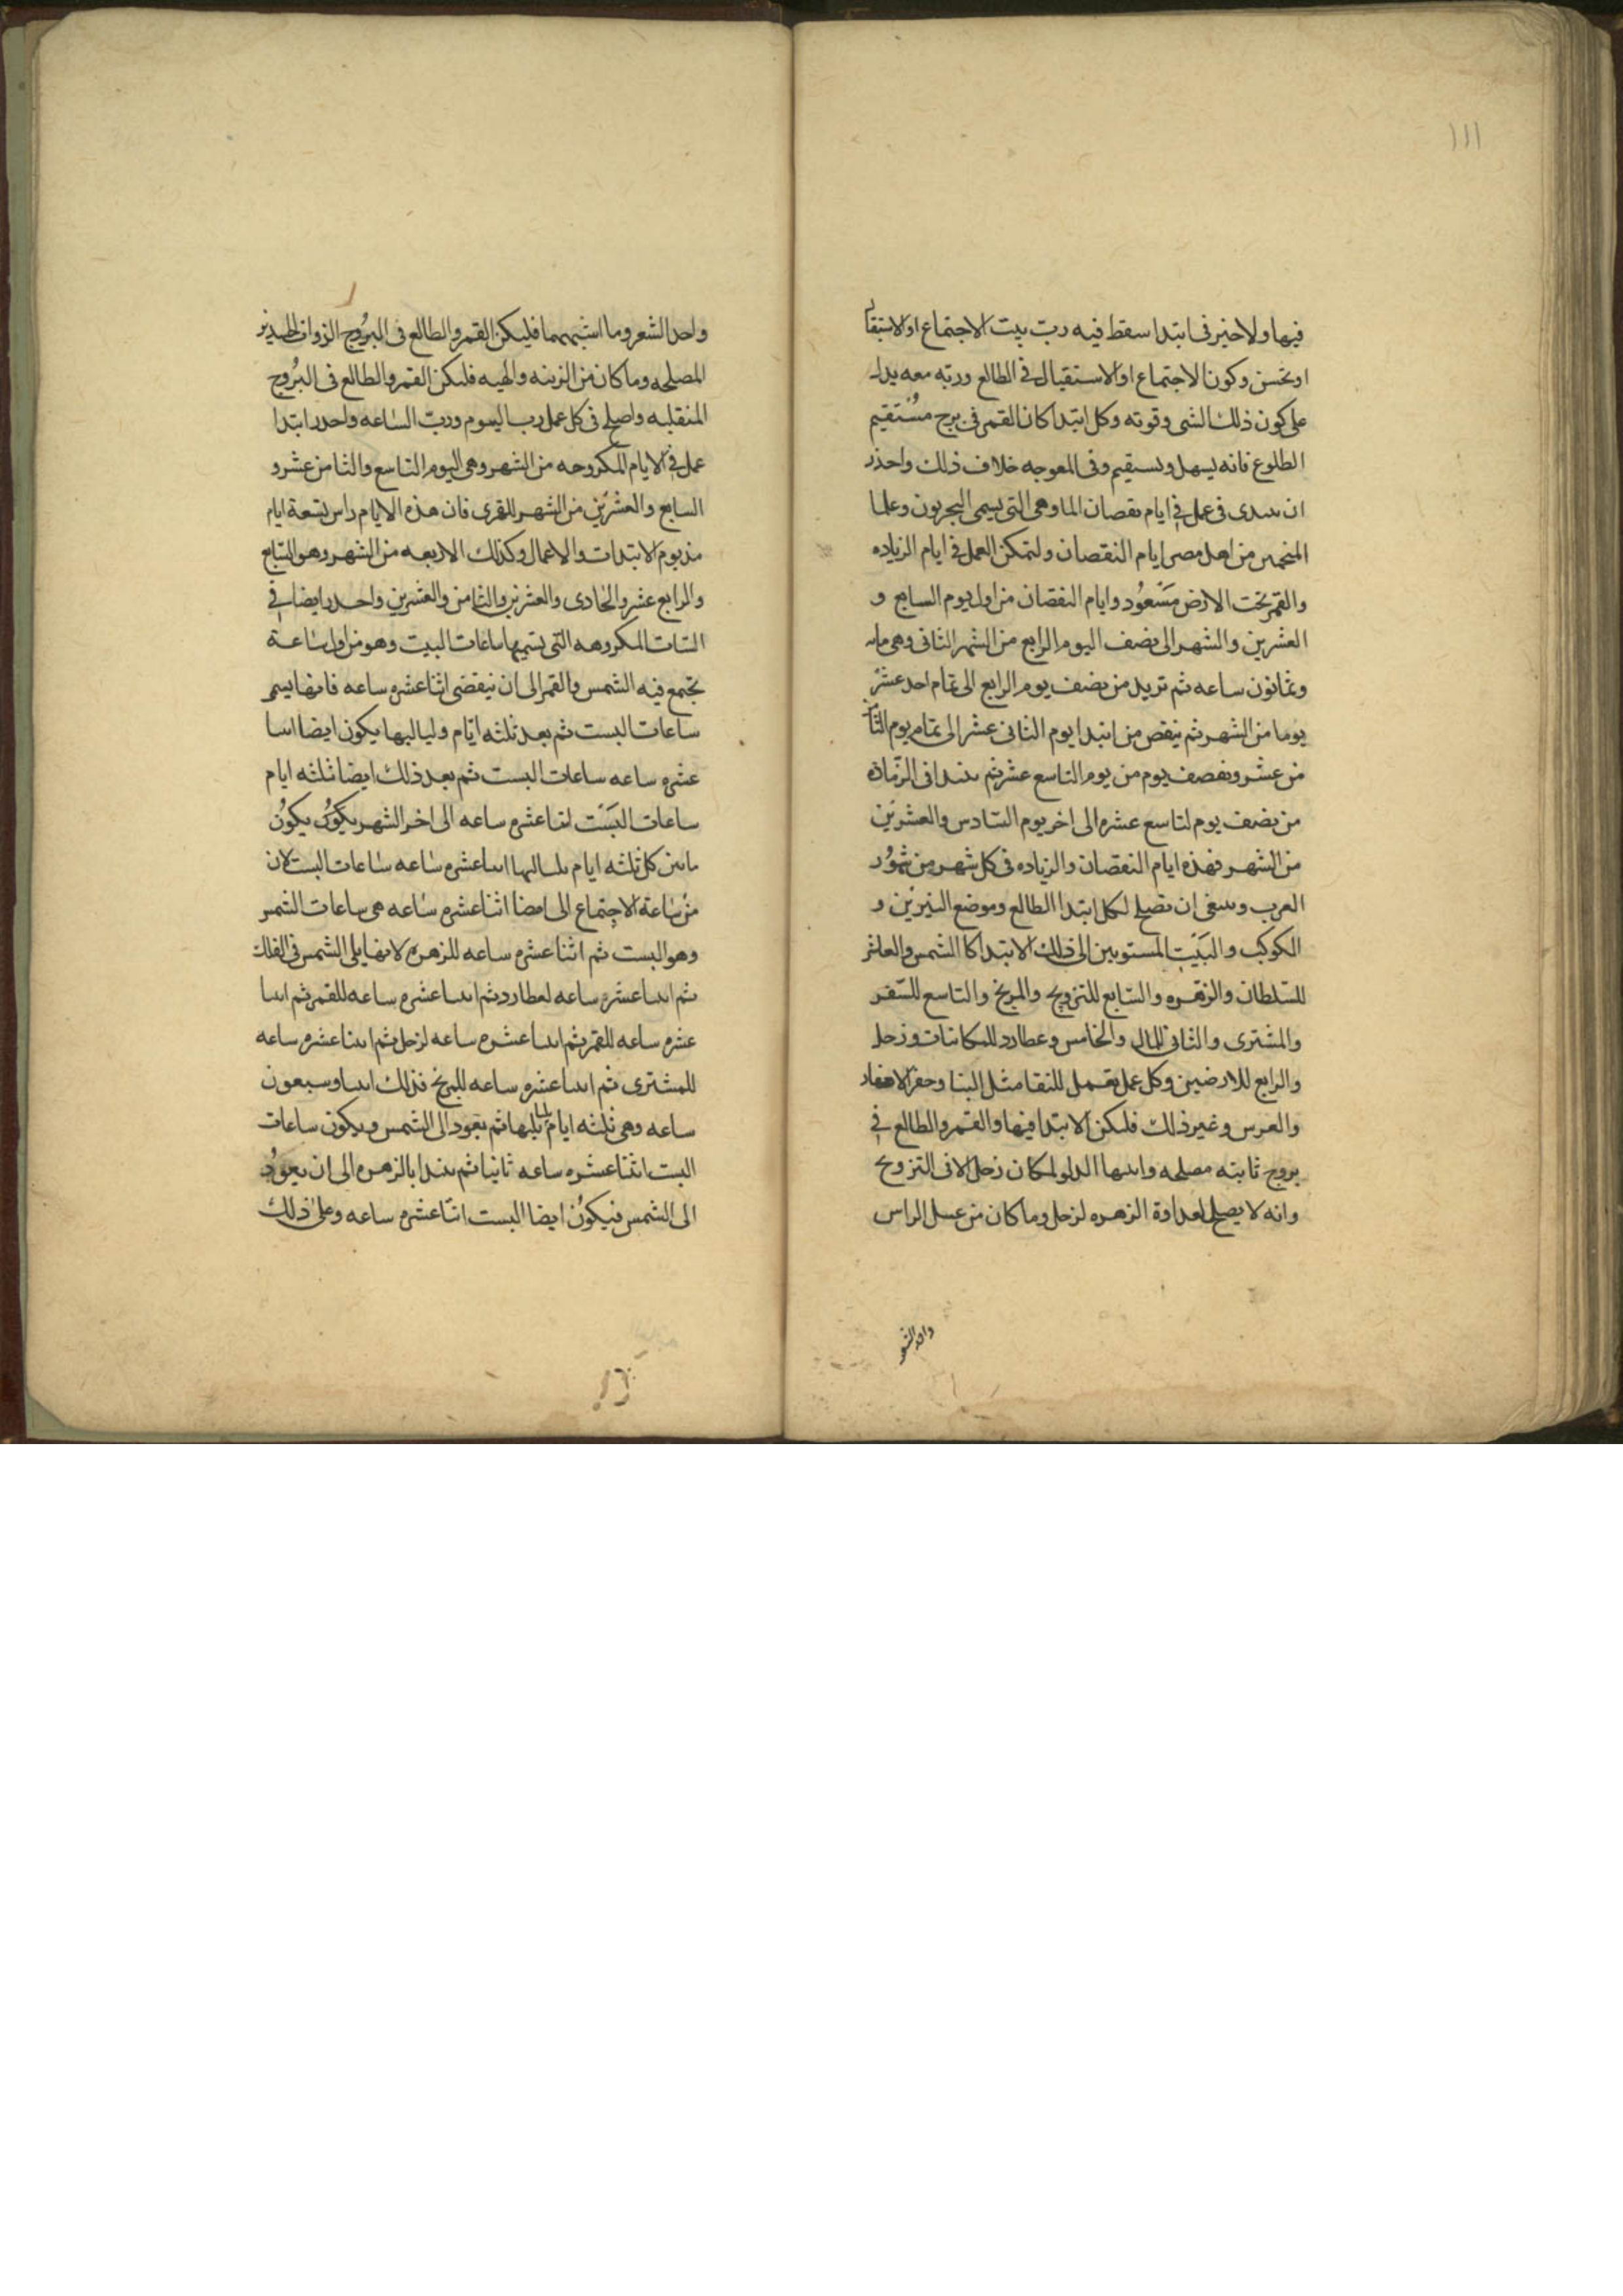 ١١١
فيها ولا خير فى ابتدا سقط فيه رب بيت الاجتماع او الاستقبال
او نحس وكون الاجتماع او الاستقبال فى الطالع وربه معه يدل
على كون ذلك الشى وقوته وكل ابتدا كان القمر فى برج مستقيم
الطلوع فانه يسهل ويستقيم وفى المعوجه خلاف ذلك واحذر
ان تبتدى فى عمل فى ايام نقصان الما وهى التى يسمى البحريون وعلما
المنجمين من اهل مصر ايام النقصان ولتمكن العمل فى ايام الزياده
والقمر تحت الارض مسعود وايام النقصان من اول يوم السابع و
العشرين والشهر الى نصف اليوم الرابع من الشهر الثانى وهى مايه
وثمانون ساعه ثم تزيد من نصف يوم الرابع الى تمام احد عشر
يوما من الشهر ثم ينقص من ابتدا يوم الثانى عشر الى تمام يوم الثا
من عشر ونصف يوم من يوم التاسع عشر ثم يبتدا فى الزيادة
من نصف يوم لتاسع عشره الى اخر يوم السادس والعشرين
من الشهر فهذه ايام النقصان والزياده فى كل شهر من شهور
العرب وينبغى ان تصلح لكل ابتدا الطالع وموضع النيرين و
الكوكب والبيت المستوبين الى ذلك الابتدا كا الشمس والعاشر
للسلطان والزهره والسابع للتزويج والمريخ والتاسع للسفر
والمشترى والثانى للمال والخامس وعطارد للكتابات وزحل
والرابع للارضين وكل عمل تعمل للنقا مثل البنا وحفر الانهار
والعرس وغير ذلك فليكن الابتدا فيها والقمر والطالع فى
بروج ثابته مصلحه وابها الدلو لمكان زحل الا فى التزويج
وانه لا يصلح لعداوة الزهره لزحل وما كان من غسل الراس
واخذ الشعر
واخذ الشعر وما اشبههما فليكن القمر والطالع فى البروج الذوات الجسدين
المصلحه وما كان من الزينه والهيه فليكن القمر والطالع فى البروج
المنقلبه واصلح فى كل عمل رب اليوم ورب الساعه واحذر ابتدا
عمل فى الايام المكروحه من الشهر وهى اليوم التاسع والثامن عشر و
السابع والعشرين من الشهر القمرى فان هذه الايام راس تسعة ايام
من يوم الابتدات والاعمال وكذلك الاربعه من الشهر وهو السابع
والرابع عشر والحادى والعشرين والثامن والعشرين واحذر ايضا فى
الساعات المكروهه التى يسميها ساعات البيت وهو من اول ساعة
تجتمع فيه الشمس والقمر الى ان ينقضى اثنا عشره ساعه فانها يسمى
ساعات البست ثم بعد ثلثه ايام ولياليها يكون ايضا اثنا
عشره ساعه ساعات البست ثم بعد ذلك ايضا ثلثه ايام
ساعات البست اثنا عشره ساعه الى اخر الشهر يكون يكون
مابين كل ثلثه ايام بلياليها اثنا عشره ساعه ساعات البست لان
من ساعة الاجتماع الى امضا اثنا عشره ساعه هى ساعات الشمس
وهو البست ثم اثنا عشره ساعه للزهره لانها يلى الشمس فى الفلك
ثم اثنا عشره ساعه لعطارد ثم اثنا عشره ساعه للقمر ثم اثنا
عشره ساعه للقمر ثم اثنا عشره ساعه لزحل ثم اثنا عشره ساعه
للمشترى ثم اثنا عشره ساعه للمريخ فذلك اثنا وسبعون
ساعه وهى ثلثه ايام بلياليها ثم يعود الى الشمس ويكون ساعات
البست اثنا عشره ساعه ثانيا ثم يبتدا بالزهره الى ان يعود
الى الشمس فيكون ايضا البست اثنا عشره ساعه وعلى ذلك